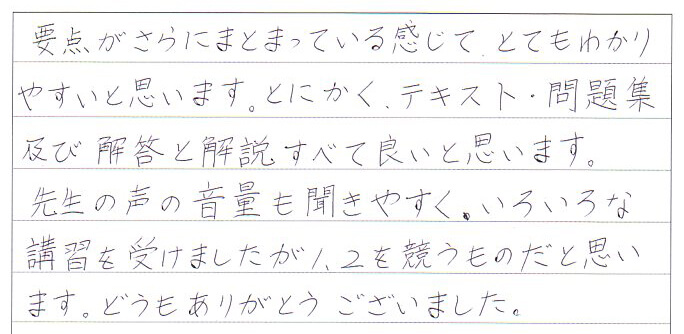 要点がさらにまとまっている感じて、とてもわかり
やすいと思います。とにかく、テキスト・問題集
及び解答と解説すべて良いと思います。
先生の声の音量も聞きやすく、いろいろな
講習を受けましたが1、2を競うものだと思い
ます。どうもありがとうございました。